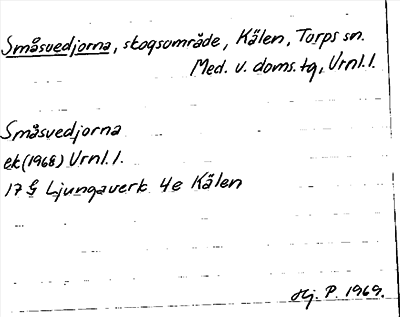 Småsvedjorna, skogsområde, Kälen, Torps sn.
Med. v. doms. tg, Vrnl. l.
Småsvedjorna
ek (1968) Vrnl. l.
17 G Ljungaverk 4e Kälen
Hj. P. 1969.